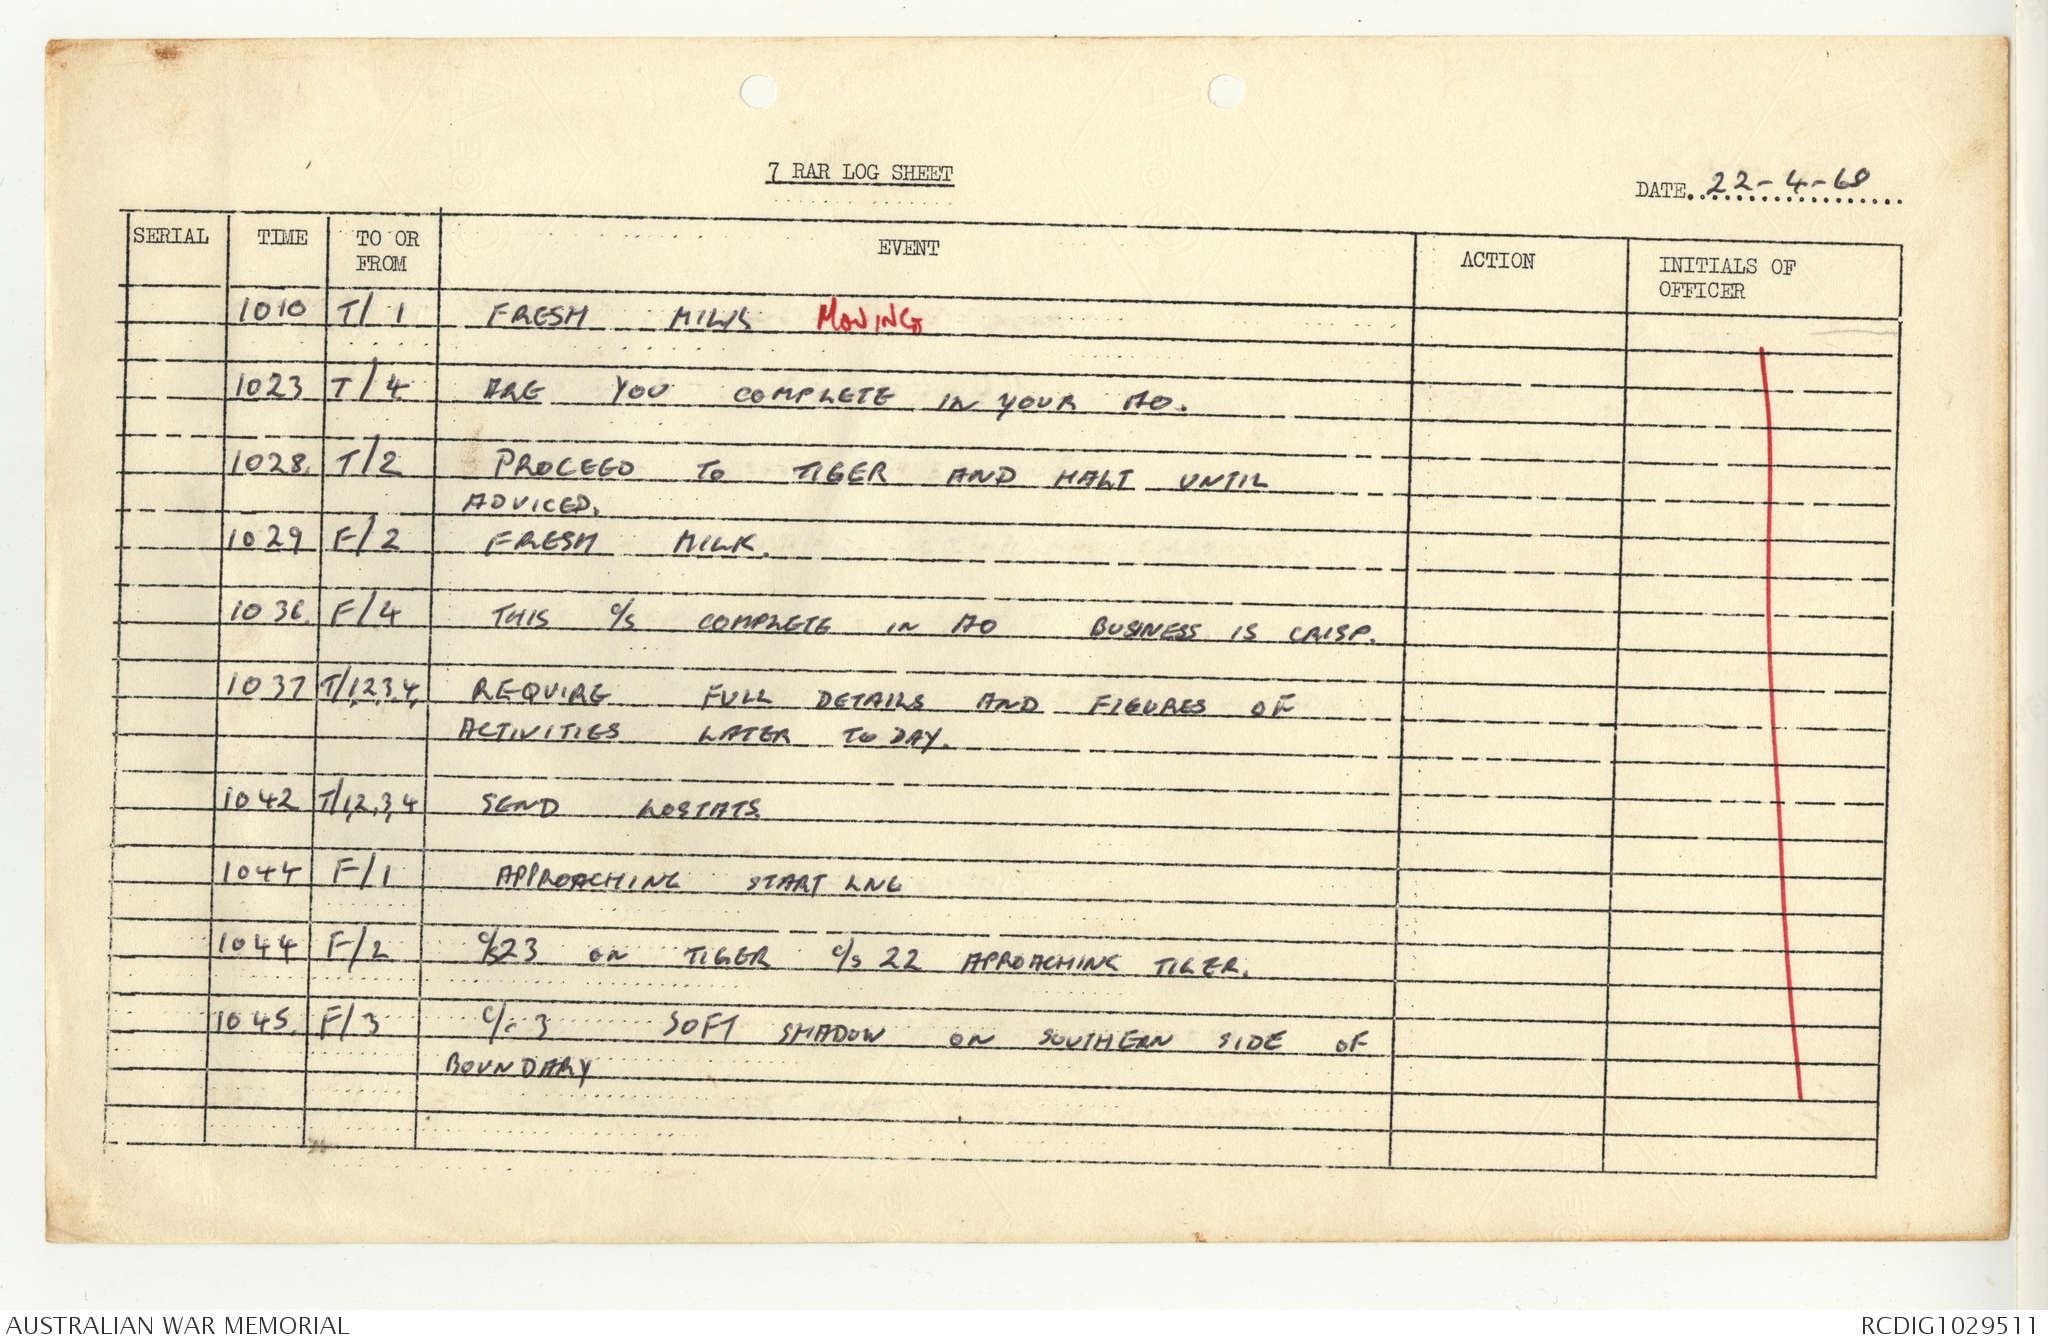 7 RAR LOG SHEET
DATE 22-4-68
SERIAL TIME TO OR FROM EVENT ACTION INITIALS OF OFFICER
1010 T/1 FRESH MILK MOVING
1023 T/4 ARE YOU COMPLETE IN YOUR AO.
1028. T/2 PROCEED TO TIGER AND HALT UNTIL
ADVICED.
1029 F/2 FRESH MILK.
1036. F/4 THIS C/S COMPLETE IN AO BUSINESS IS CRISP.
1037 T/1,2,3,4, REQUIRE FULL DETAILS AND FIGURES OF
ACTIVITIES LATER TODAY.
1042 T/1,2,3,4 SEND LOSTATS
1044 F/1 APPROACHING START LNE
1044 F/2 C/S23 ON TIGER C/S 22 APROACHING TIGER.
1045. F/3 C/S 3 SOFT SHADOW ON SOUTHERN SIDE OF
BOUNDARY
AUSTRALIAN WAR MEMORIAL
RCDIG1029511